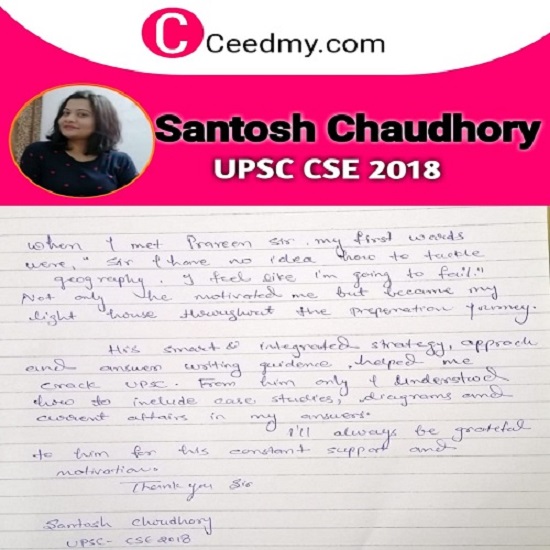 C Ceedmy.com
Santosh Chaudhory
UPSC CSE 2018
When I met Praveen Sir, my first words
were, "Sir I have no idea how to tackle
geography. I feel like I'm going to fail."
Not only he motivated me but became my
light house throughout the preparation journey.
His smart & integrated strategy, approch
and answer writing guidence, helped me
crack UPSC. From him only I understood
how to include case studies, diagrams and
current affairs in my answers.
I'll always be grateful
to him for his constant support and
motivation.
Thank you Sir
Santosh Choudhory
UPSC- CSE 2018